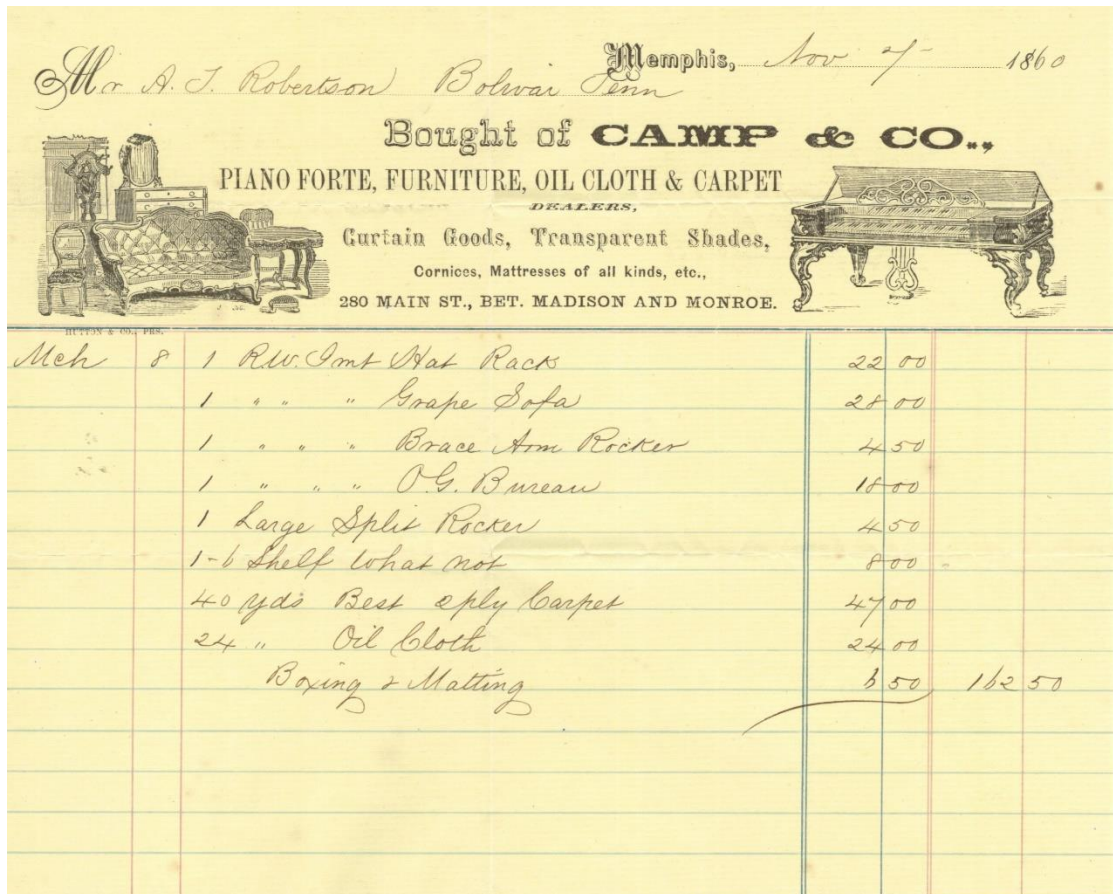 Memphis, Nov 7 1860
Mr A. T. Robertson Bolivar Tenn
Bought of CAMP & CO.,
PIANO FORTE, FURNITURE, OIL CLOTH & CARPET
DEALERS,
Curtain Goods, Transparent Shades,
Cornices, Mattresses of all kinds, etc.,
280 MAIN ST., BET. MADISON AND MONROE.
HUTTON & CO., PRS.
Mch 8 1 R.W. Imt Hat Rack 22 00
1 " " " Grape Sofa 28 00
1 " " " Brace Arm Rocker 4 50
1 " " " O.G. Bureau 18 00
1 Large Split Rocker 4 50
1-6 Shelf What not 8 00
40 yds Best 2ply Carpet 47 00
24 " Oil Cloth 24 00
Boxing & Matting 6 50 162 50